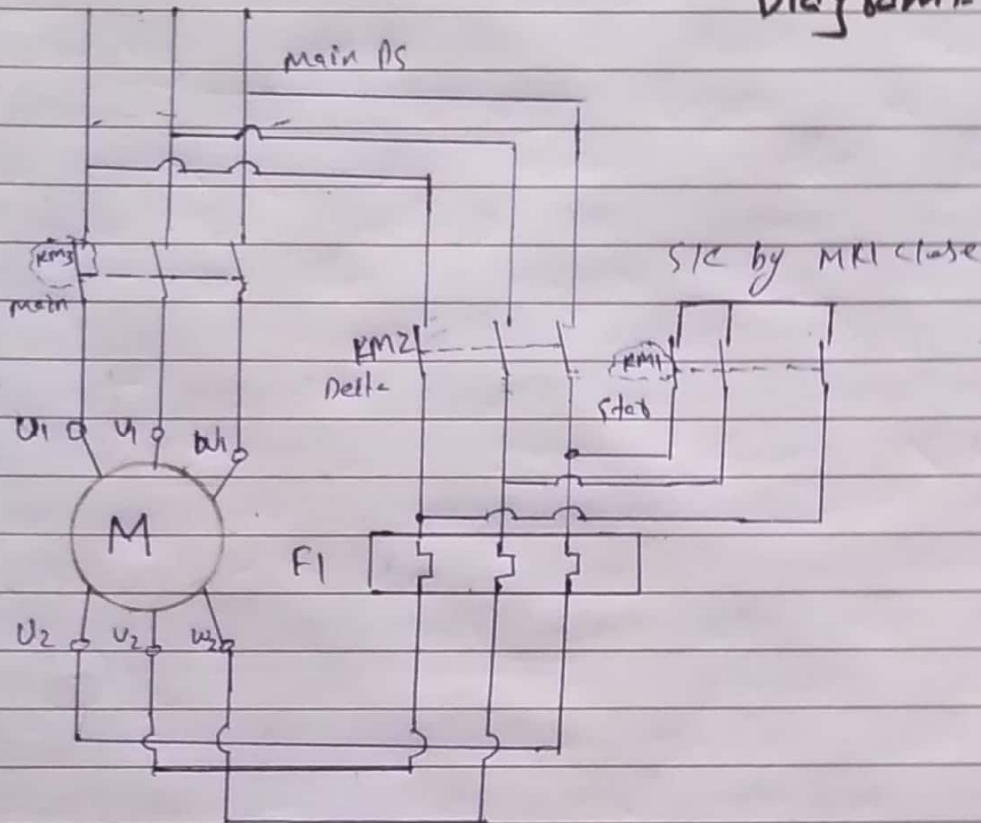 Diagram
Main PS
KM3
Main
S/C by MK1 Close
KM2
Delta
KM1
Star
U1 V1 W1
M
F1
U2 V2 W2